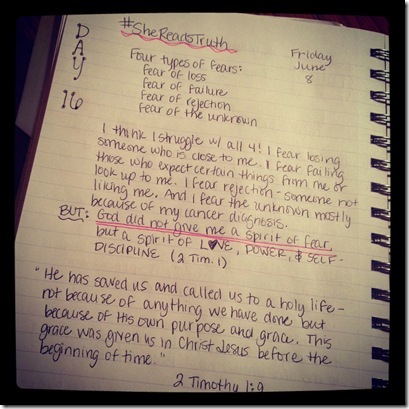 #SheReadsTruth
DAY 16
Friday
June
8
Four types of fears:
fear of loss
fear of failure
fear of rejection
fear of the unknown
I think I struggle w/ all 4! I fear losing
someone who is close to me. I fear failing
those who expect certain things from me or
look up to me. I fear rejection - someone not
liking me. And I fear the unknown mostly
because of my cancer diagnosis.
BUT: God did not give me a spirit of fear,
but a spirit of L♥VE, POWER, & SELF-
DISCIPLINE (2 Tim. 1)
"He has saved us and called us to a holy life-
not because of anything we have done but
because of His own purpose and grace. This
grace was given us in Christ Jesus before the
beginning of time."
2 Timothy 1:9